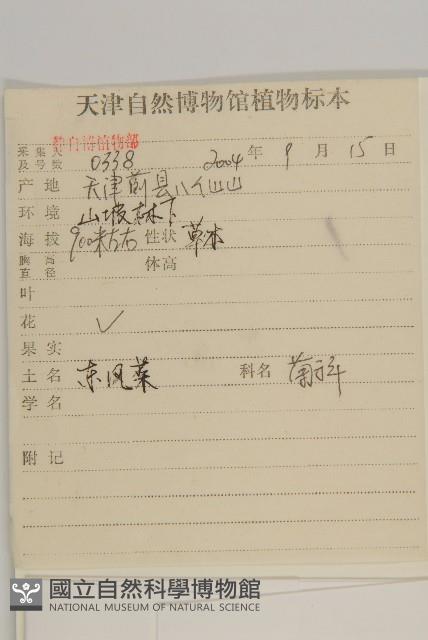 天津自然博物馆植物标本
津自博植物部
采集人
及号数 0338 2004 年 9 月 15 日
产地 天津蓟县八仙山
环境 山坡林下
海拔 900米左右 性状 草本
胸高
直径 体高
叶
花 ✓
果实
土名 东风菜 科名 菊科
学名
附记
國立自然科學博物館
NATIONAL MUSEUM OF NATURAL SCIENCE